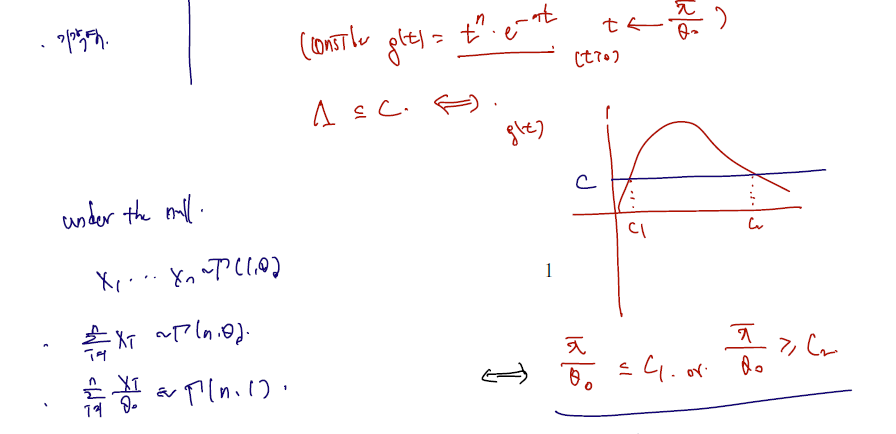 (Consider g(t) = t^n · e^{-nt}   t ← x̄/θ₀ )
(t>0)
Λ ≤ C. ⟺ .
g(t)
C
C₁
C₂
under the null.
X₁ ... Xₙ ~ Γ(1,θ)
1
Σ_{i=1}^{n} Xᵢ ~ Γ(n,θ).
Σ_{i=1}^{n} Xᵢ/θ₀ ~ Γ(n,1).
⟺ x̄/θ₀ ≤ C₁. or. x̄/θ₀ ≥ C₂